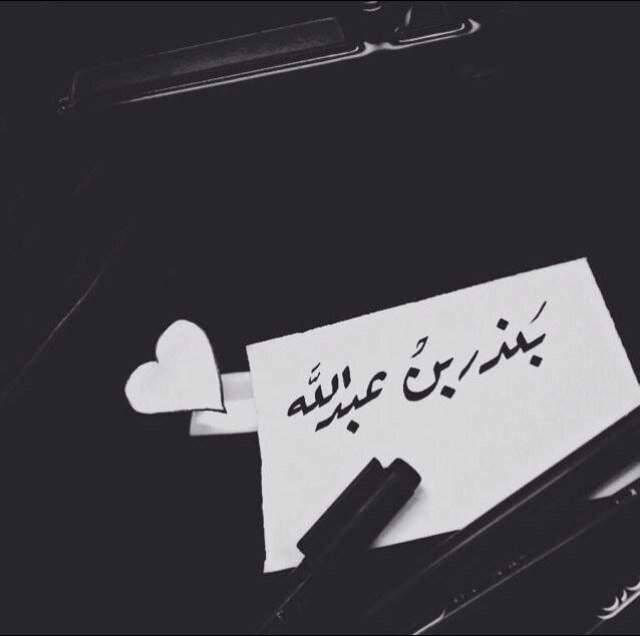 بَندر بنُ عبداللَّه